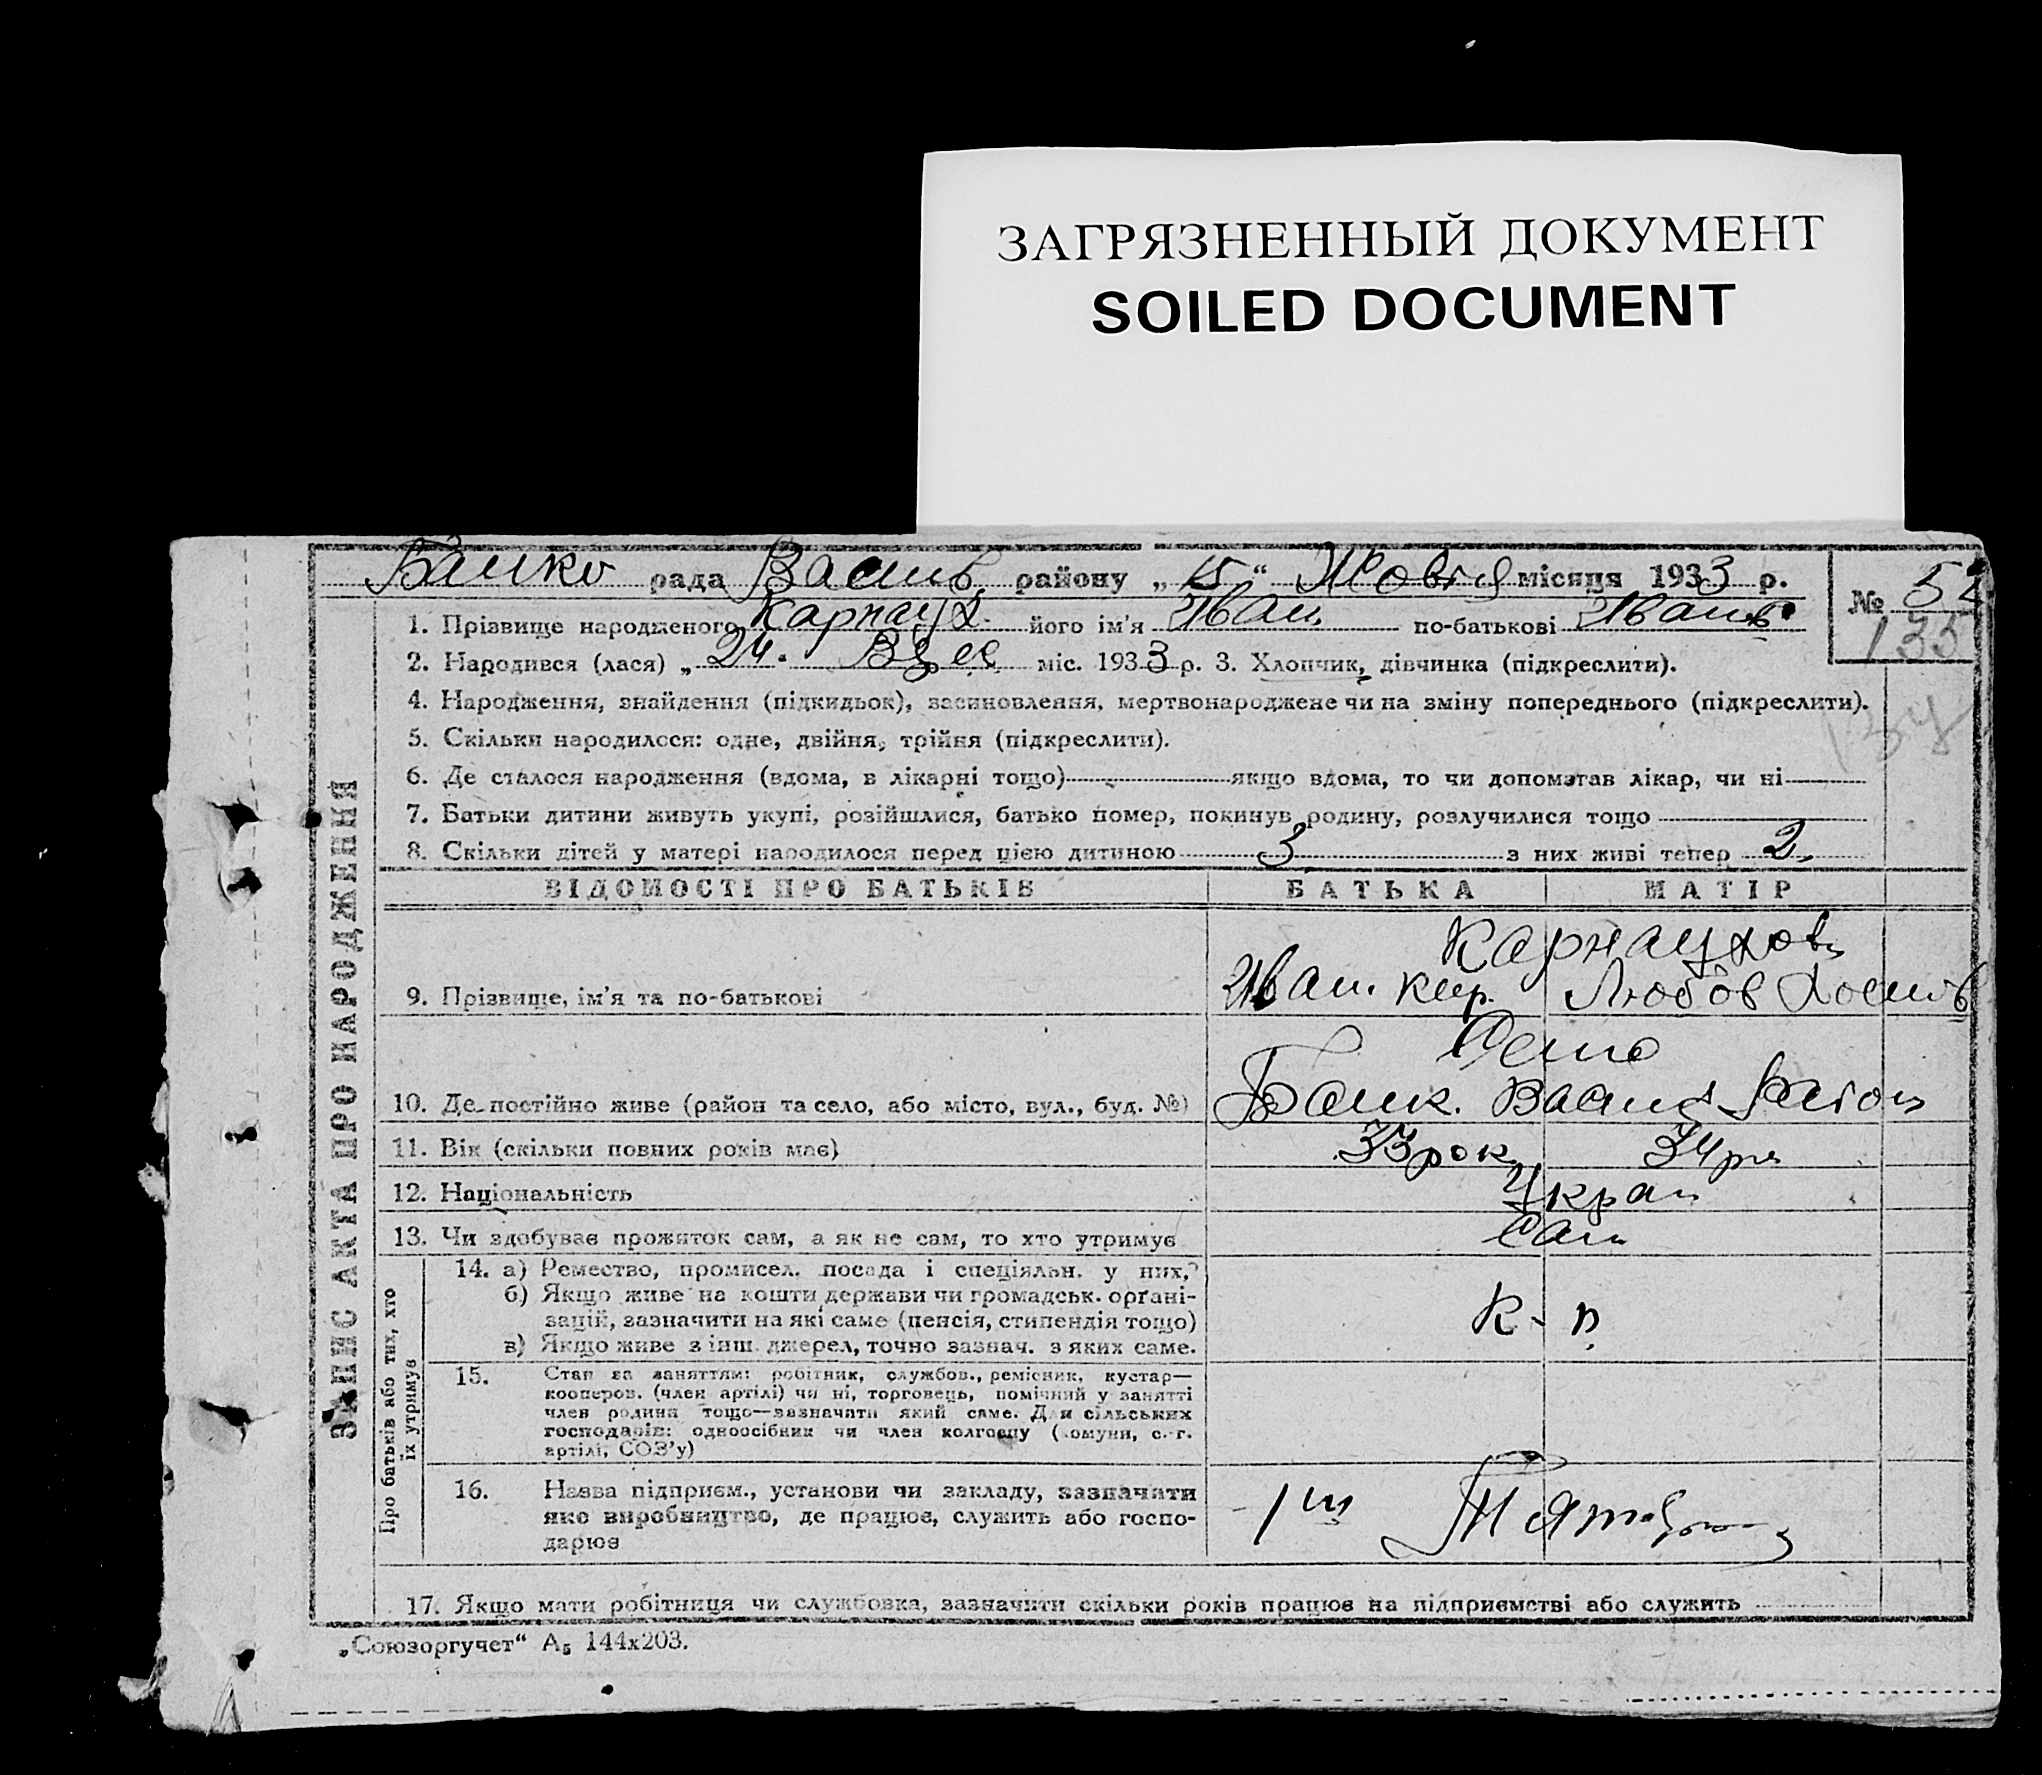 ЗАГРЯЗНЕННЫЙ ДОКУМЕНТ
SOILED DOCUMENT
рада Васил. району „15“ Жовтня місяця 1933 р.
№ 52
135
134
1. Прізвище народженого Карнаух. його ім'я Іван по-батькові Іванов.
2. Народився (лася) „24. Верес міс. 1933 р. 3. Хлопчик, дівчинка (підкреслити).
4. Народження, знайдення (підкидьок), засиновлення, мертвонароджене чи на зміну попереднього (підкреслити).
5. Скільки народилося: одне, двійня, трійня (підкреслити).
6. Де сталося народження (вдома, в лікарні тощо) якщо вдома, то чи допомагав лікар, чи ні
7. Батьки дитини живуть укупі, розійшлися, батько помер, покинув родину, розлучилися тощо
8. Скільки дітей у матері народилося перед цією дитиною 3 з них живі тепер 2.
ЗАПИС АКТА ПРО НАРОДЖЕННЯ
ВІДОМОСТІ ПРО БАТЬКІВ БАТЬКА МАТІР
Карнаухов
9. Прізвище, ім'я та по-батькові Іван. Кир. Любов
Село
10. Де постійно живе (район та село, або місто, вул., буд. №) район
11. Вік (скільки повних років має) 33 рок 34 р
12. Національність Украї
13. Чи здобуває прожиток сам, а як не сам, то хто утримує Сам
Про батьків або тих, хто
їх утримує
14. а) Ремество, промисел. посада і спеціяльн. у них,
б) Якщо живе на кошти держави чи громадськ. органі-
зацій, зазначити на які саме (пенсія, стипендія тощо)
в) Якщо живе з інш. джерел, точно зазнач. з яких саме.
К-п
15. Стан за заняттям: робітник, службов., ремісник, кустар—
кооперов. (член артілі) чи ні, торговець, помічний у занятті
член родини тощо—зазначати який саме. Для сільських
господарів: одноосібник чи член колгоспу (комуни, с.-г.
артілі, СОЗ'у)
16. Назва підприєм., установи чи закладу, зазначити
яке виробництво, де працює, служить або госпо-
дарює
17. Якщо мати робітниця чи службовка, зазначити скільки років працює на підприємстві або служить
„Союзоргучет“ А5 144х203.